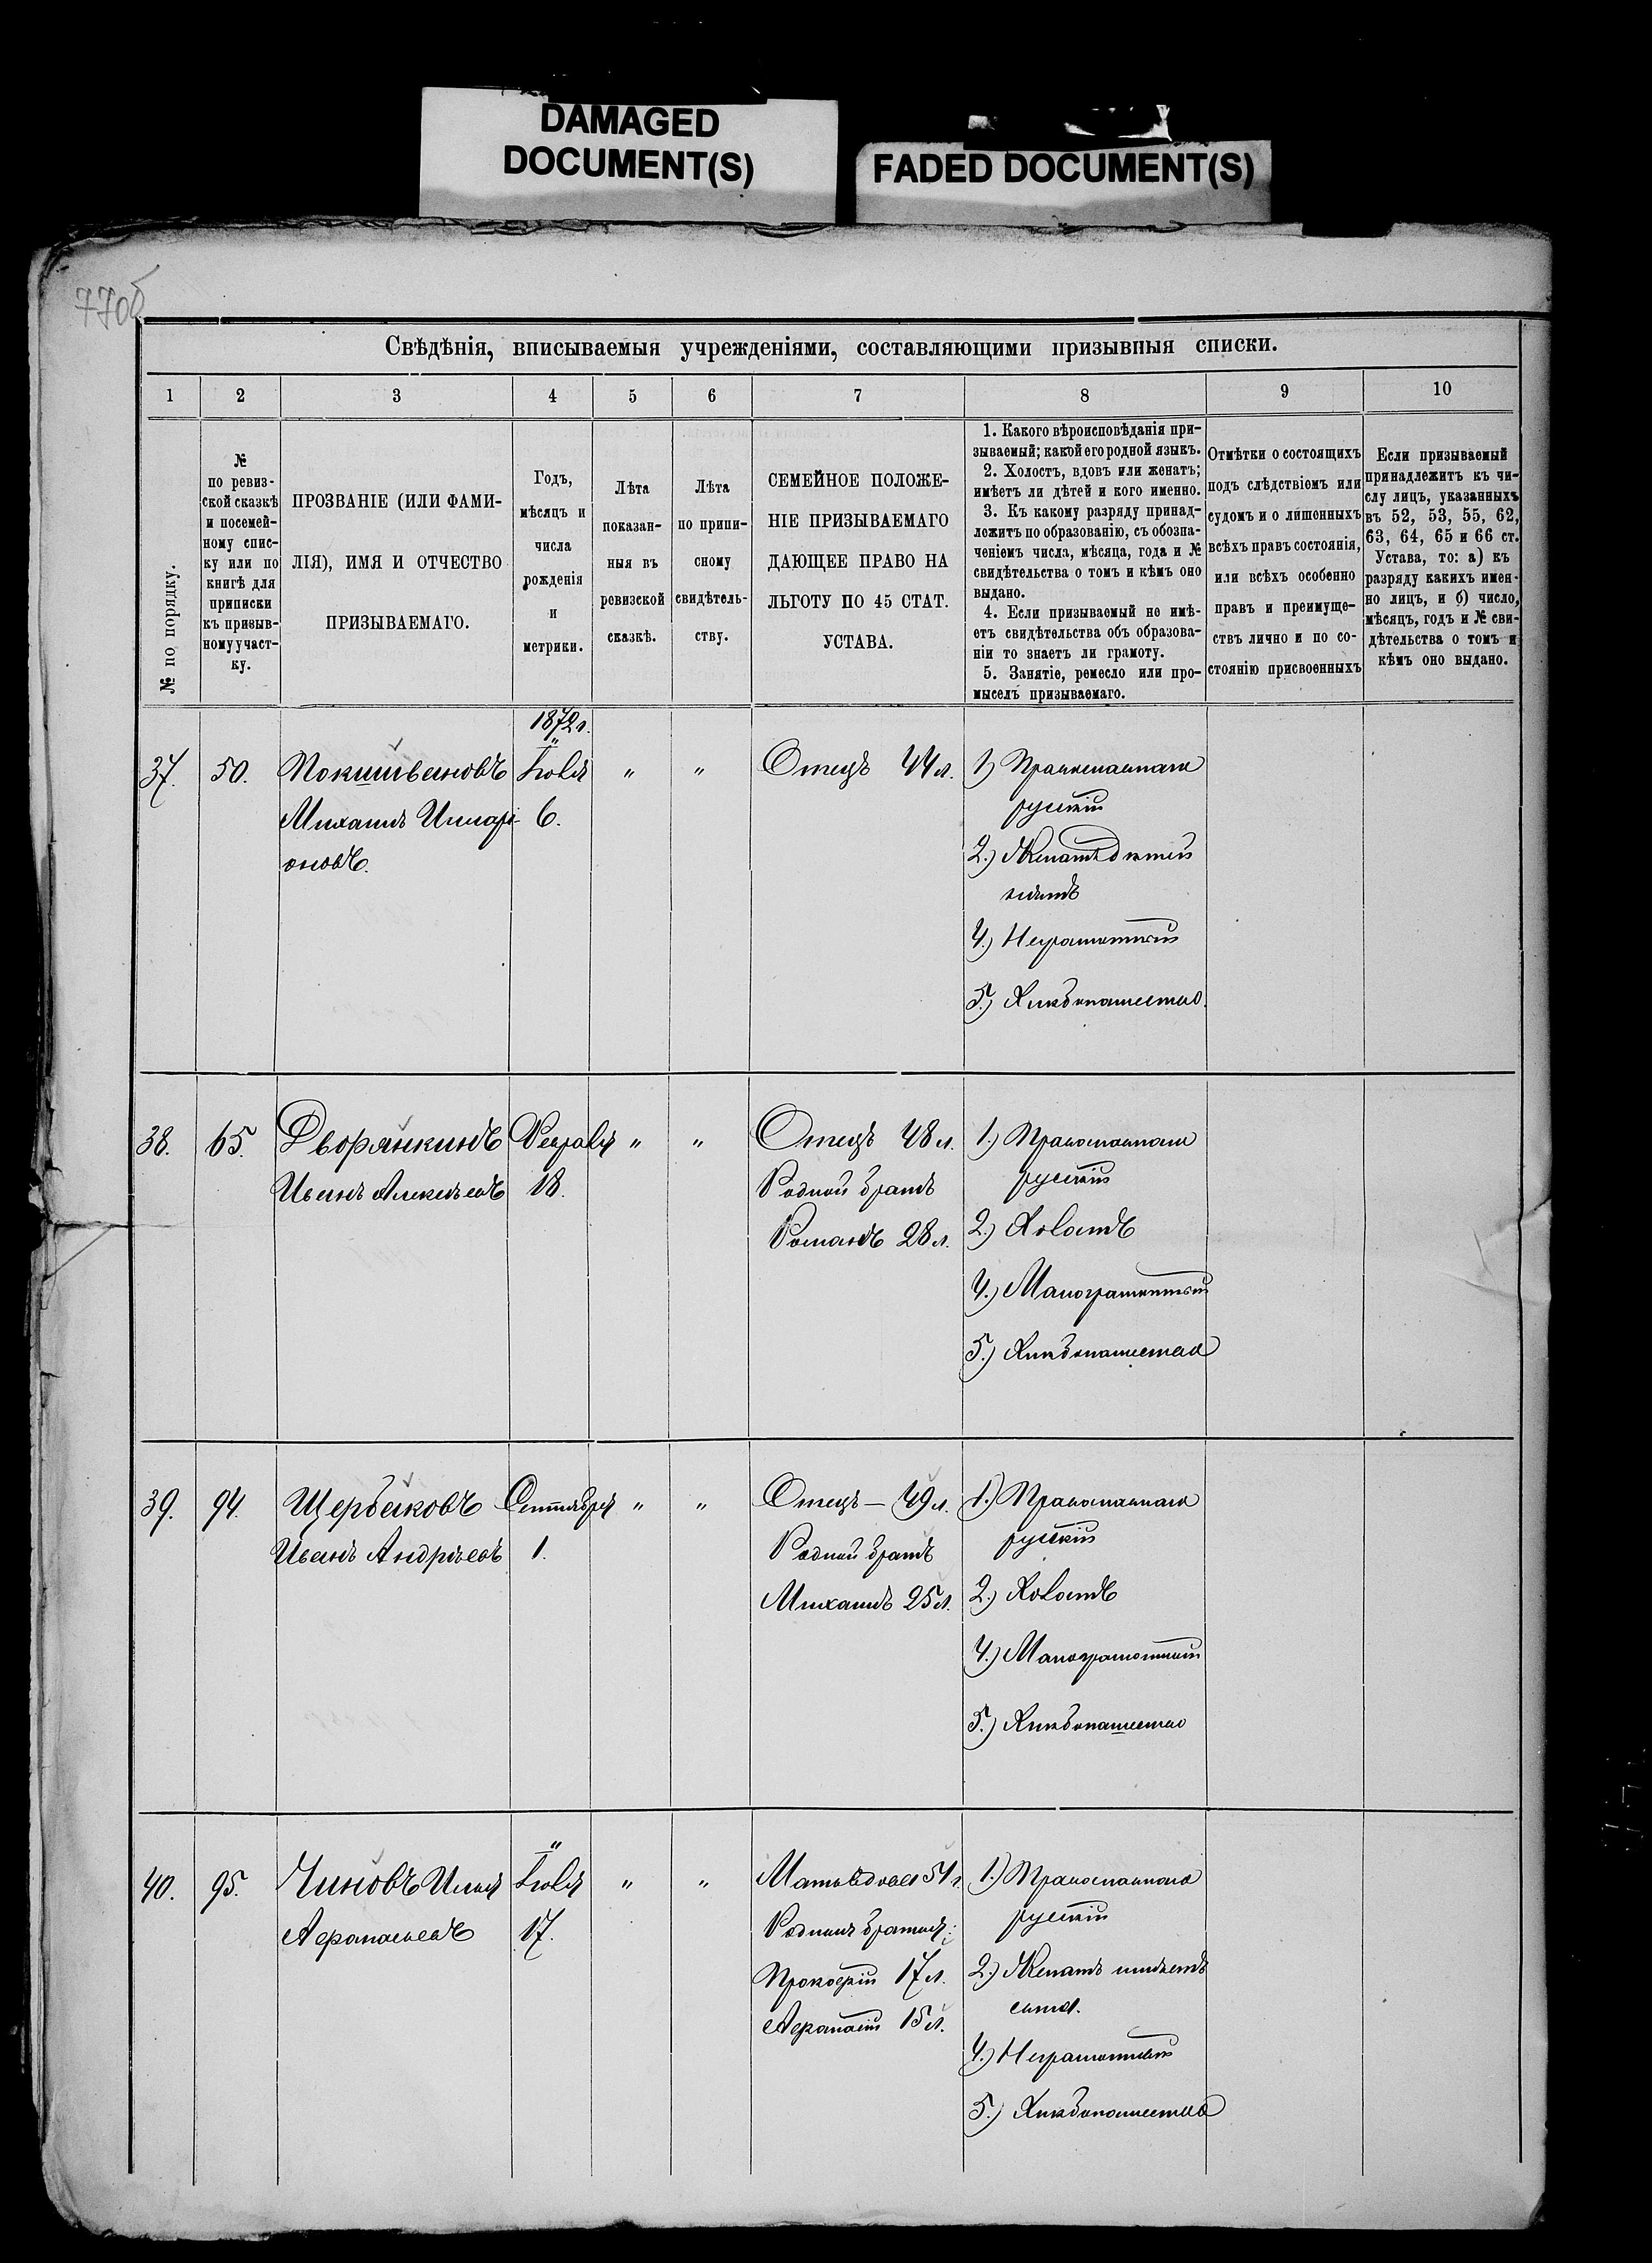 DAMAGED
DOCUMENT(S)
FADED DOCUMENT(S)
770б
Свѣдѣнія, вписываемыя учрежденіями, составляющими призывныя списки.
1 2 3 4 5 6 7 8 9 10
№ по порядку.
№
по ревиз-
ской сказкѣ
и посемей-
ному спис-
ку или по
книгѣ для
приписки
къ призыв-
ному участ-
ку.
ПРОЗВАНІЕ (ИЛИ ФАМИ-
ЛІЯ), ИМЯ И ОТЧЕСТВО
ПРИЗЫВАЕМАГО.
Годъ,
мѣсяцъ и
числа
рожденія
и
метрики.
Лѣта
показан-
ныя въ
ревизской
сказкѣ.
Лѣта
по припи-
сному
свидѣтель-
ству.
СЕМЕЙНОЕ ПОЛОЖЕ-
НІЕ ПРИЗЫВАЕМАГО
ДАЮЩЕЕ ПРАВО НА
ЛЬГОТУ ПО 45 СТАТ.
УСТАВА.
1. Какого вѣроисповѣданія при-
зываемый; какой его родной языкъ.
2. Холостъ, вдовъ или женатъ;
имѣетъ ли дѣтей и кого именно.
3. Къ какому разряду принад-
лежитъ по образованію, съ обозна-
ченіемъ числа, мѣсяца, года и №
свидѣтельства о томъ и кѣмъ оно
выдано.
4. Если призываемый не имѣ-
етъ свидѣтельства объ образова-
ніи то знаетъ ли грамоту.
5. Занятіе, ремесло или про-
мыселъ призываемаго.
Отмѣтки о состоящихъ
подъ слѣдствіемъ или
судомъ и о лишенныхъ
всѣхъ правъ состоянія,
или всѣхъ особенно
правъ и преимуще-
ствъ лично и по со-
стоянію присвоенныхъ
Если призываемый
принадлежитъ къ чи-
слу лицъ, указанныхъ
въ 52, 53, 55, 62,
63, 64, 65 и 66 ст.
Устава, то: а) къ
разряду какихъ имен-
но лицъ, и б) число,
мѣсяцъ, годъ и № сви-
дѣтельства о томъ и
кѣмъ оно выдано.
1872 г.
37. 50. Іюля " " Отецъ 44 л. 1) Православнаго
Михаилъ Илларі- 6. русскій
оновъ. 2.) Женатъ дѣтей
нѣтъ
4.) Неграмотный
5.) Хлѣбопашество.
38. 65. Дворянкинъ Февраля " " Отецъ 48 л. 1.) Православнаго
Иванъ Алексѣевъ 18. Родной братъ русскій
Романъ 28 л. 2.) Холостъ
4.) Малограмотный
5.) Хлѣбопашество
39. 94. Щербаковъ Сентября " " Отецъ — 49 л. 1.) Православнаго
Иванъ Андрѣевъ 1. Родной братъ русскій
Михаилъ 25 л. 2.) Холостъ
4.) Малограмотный
5.) Хлѣбопашество
40. 95. Чиновъ Илья Іюля " " Мать вдова 51 г. 1.) Православнаго
Афанасьевъ 17. Родныхъ братья: русскій
Прокофій 17 л. 2.) Женатъ имѣетъ
Афанасій 15 л. сына.
4.) Неграмотный
5.) Хлѣбопашество